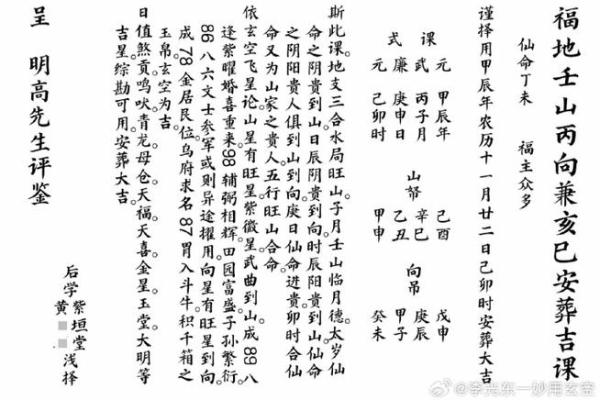 福地壬山丙向兼亥巳安葬吉课
仙命丁未 福主众多
谨择用甲辰年农历十一月廿二日己卯时安葬大吉
课式
元 甲辰年
武 丙子月
廉 庚申日
元 己卯时
山帮
己酉
辛巳
乙丑
甲申
向吊
戊申
庚辰
甲子
癸未
斯此课。地支三合水局旺山子月壬山临月德太岁仙
命之阴贵到山日辰阴贵到向时辰阳贵到山仙命
之阴阳贵人俱到山到向。庚日仙命进贵卯时合仙
命又为山家之贵人五行旺山合命。
依玄空飞星论山星有旺星紫微星武曲到山成。89八
逢紫曜婚喜重来。98辅弼相辉田园富盛子孙繁衍。
86八六文士参军或则异途擢用向星有旺星到向
成。78金居艮位乌府求名。87胃入斗牛积千箱之
玉帛。玄空为吉。
日值煞贡鸣吠青龙母仓天福天喜金星玉堂大明等
吉星综勘可用安葬大吉。
呈 明高先生评鉴
后学紫垣堂
黄 浅择
@李光东一妙用玄空